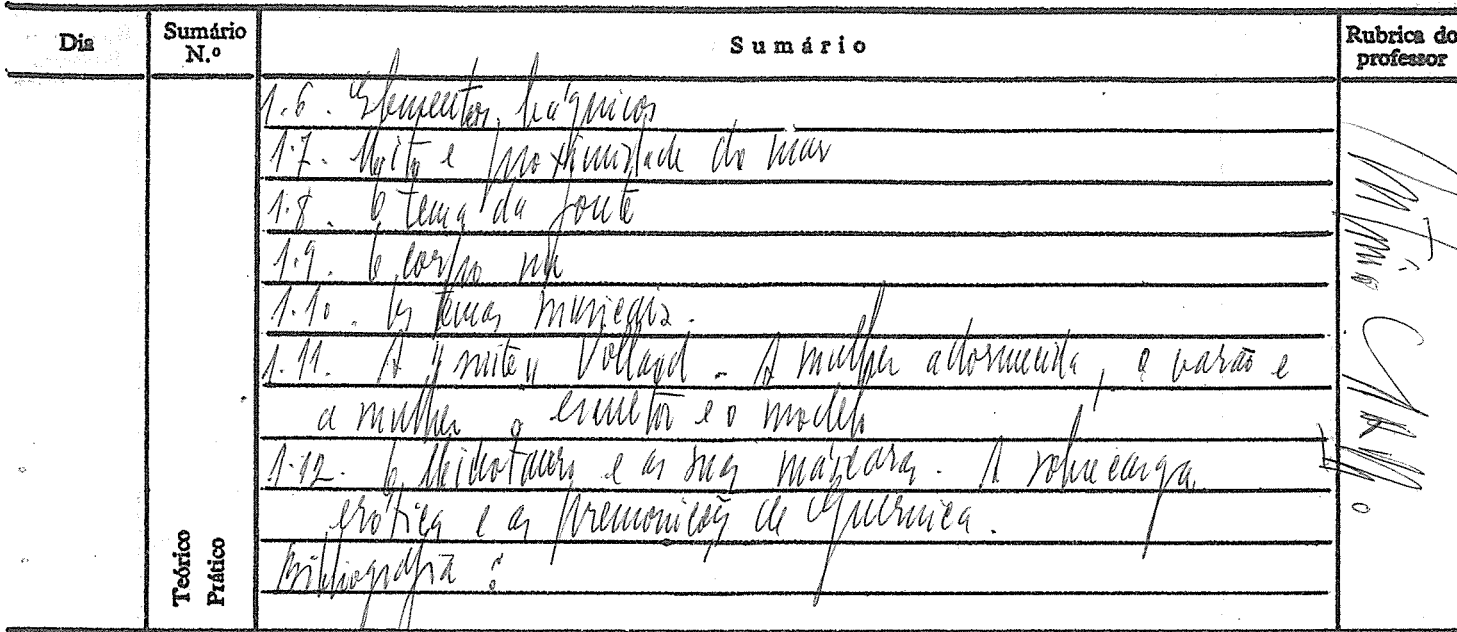 Dia
Sumário N.º
Sumário
Rubrica do professor
1.6. Elementos báquicos
1.7. Mito e proximidade do mar
1.8. O tema da fonte
1.9. O corpo nu
1.10. Os temas musicais.
1.11. A "suite" Vollard - A mulher adormecida, o varão e
a mulher, o escultor e o modelo
1.12. O Minotauro e as suas máscaras. A sobrecarga
erótica e as premonições de Guernica.
Bibliografia:
Teórico
Prático